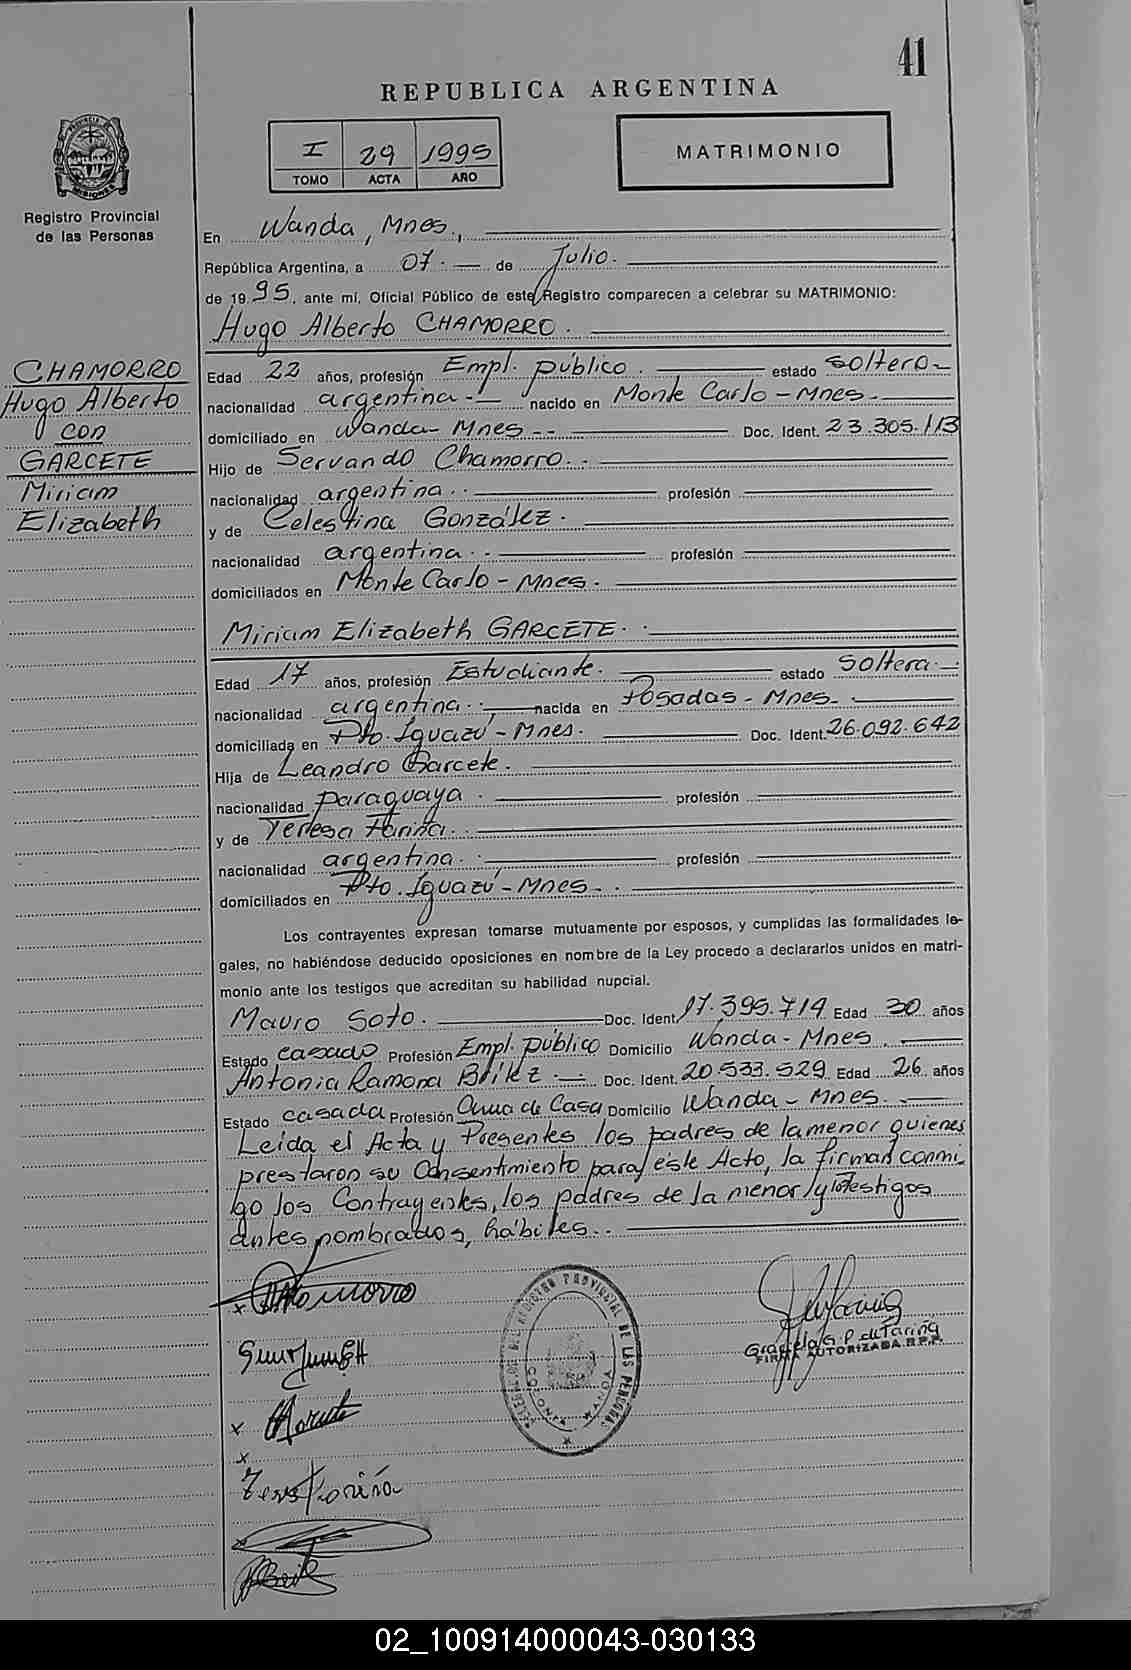 41
REPUBLICA ARGENTINA
I 29 1995
TOMO ACTA AÑO
MATRIMONIO
PROVINCIA DE MISIONES
Registro Provincial
de las Personas
En Wanda, Mnes.,
República Argentina, a 07. de Julio.
de 1995, ante mí, Oficial Público de este Registro comparecen a celebrar su MATRIMONIO:
Hugo Alberto CHAMORRO.
CHAMORRO
Hugo Alberto
con
GARCETE
Miriam
Elizabeth
Edad 22 años, profesión Empl. público. estado soltero
nacionalidad argentina. nacido en Monte Carlo - Mnes.
domiciliado en Wanda - Mnes Doc. Ident. 23.305.113
Hijo de Servando Chamorro.
nacionalidad argentina. profesión
y de Celestina González.
nacionalidad argentina. profesión
domiciliados en Monte Carlo - Mnes.
Miriam Elizabeth GARCETE.
Edad 17 años, profesión Estudiante. estado soltera.
nacionalidad argentina. nacida en Posadas - Mnes.
domiciliada en Pto. Iguazú - Mnes. Doc. Ident. 26.092.642
Hija de Leandro Garcete.
nacionalidad paraguaya. profesión
y de Teresa Fariña.
nacionalidad argentina. profesión
domiciliados en Pto. Iguazú - Mnes.
Los contrayentes expresan tomarse mutuamente por esposos, y cumplidas las formalidades le-
gales, no habiéndose deducido oposiciones en nombre de la Ley procedo a declararlos unidos en matri-
monio ante los testigos que acreditan su habilidad nupcial.
Mauro Soto. Doc. Ident. 17.395.714 Edad 30 años
Estado casado Profesión Empl. público Domicilio Wanda - Mnes.
Antonia Ramona Britez Doc. Ident. 20.533.529 Edad 26 años
Estado casada Profesión Ama de Casa Domicilio Wanda - Mnes.
Leída el Acta y Presentes los padres de la menor quienes
prestaron su Consentimiento para este Acto, la firman conmi-
go los Contrayentes, los padres de la menor y los Testigos
antes nombrados, hábiles.
Graciela G. P. de Fariña
FIRMA AUTORIZADA R.P.P.
REGISTRO PROVINCIAL DE LAS PERSONAS
COLONIA WANDA
02_100914000043-030133